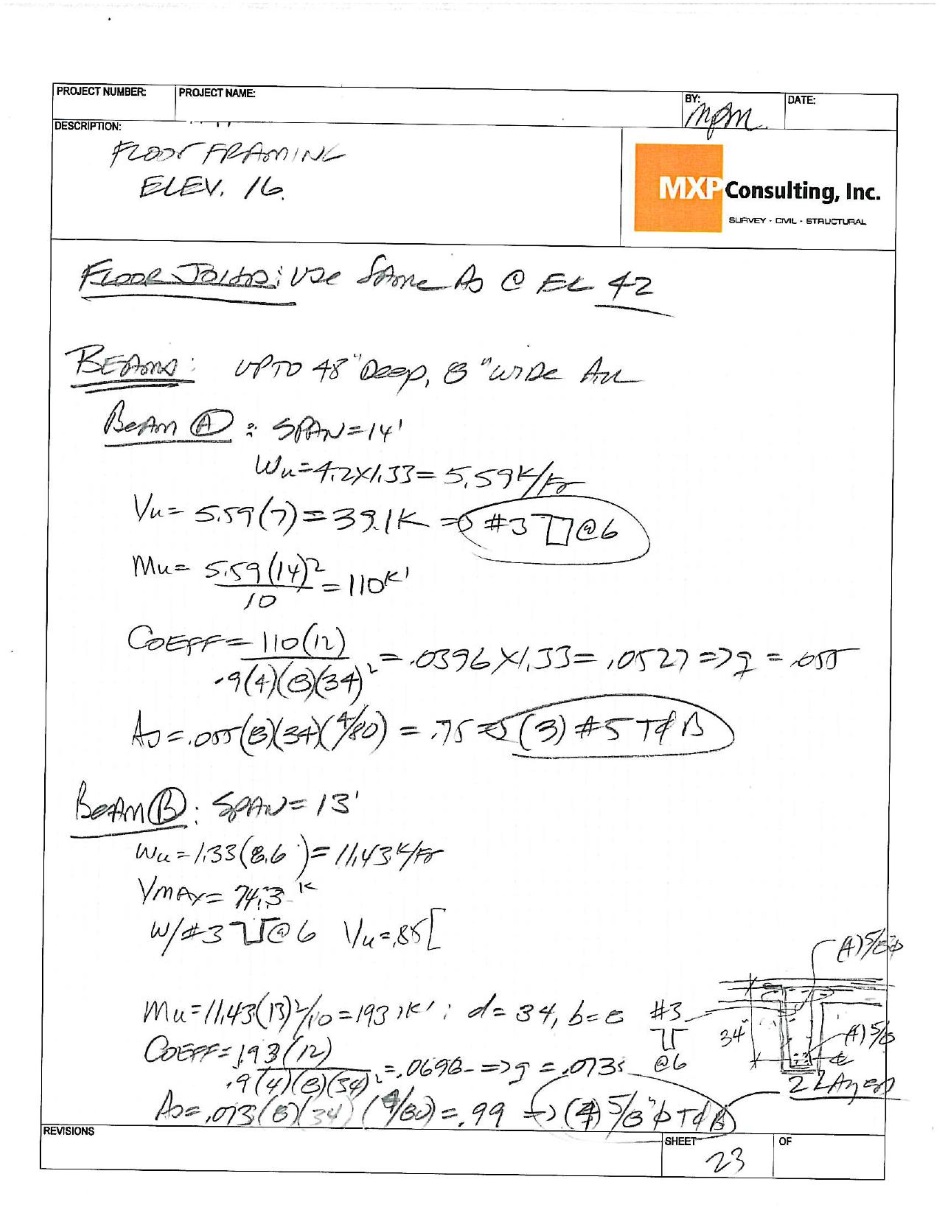 PROJECT NUMBER: PROJECT NAME: BY: MPM DATE:
DESCRIPTION:
FLOOR FRAMING
ELEV. 16.
MXP Consulting, Inc.
SURVEY - CIVIL - STRUCTURAL
FLOOR JOISTS: USE SAME AS @ EL 42
BEAMS: UP TO 48" DEEP, 8" WIDE ALL
BEAM A : SPAN = 14'
Wu = 4.2 X 1.33 = 5.59 K/FT
Vu = 5.59 (7) = 39.1K => #3 @ 6
Mu = 5.59 (14)² / 10 = 110 K'
COEFF = 110 (12) / .9(4)(8)(34)² = .0396 X 1.33 = .0527 => q = .055
As = .055 (8)(34)(4/80) = .75 => (3) #5 T & B
BEAM B : SPAN = 13'
Wu = 1.33 (8.6) = 11.43 K/FT
VMAX = 74.3 K
W/ #3 @ 6 Vu = .85 [
(4) 5/8 φ
Mu = 11.43 (13)²/10 = 193 K' ; d = 34, b = 8 #3
@6
34"
(4) 5/8
COEFF = 193 (12) / .9(4)(8)(34)² = .0698 => q = .073
2 LAYERS
As = .073 (8)(34)(4/80) = .99 => (4) 5/8" φ T & B
REVISIONS SHEET 23 OF